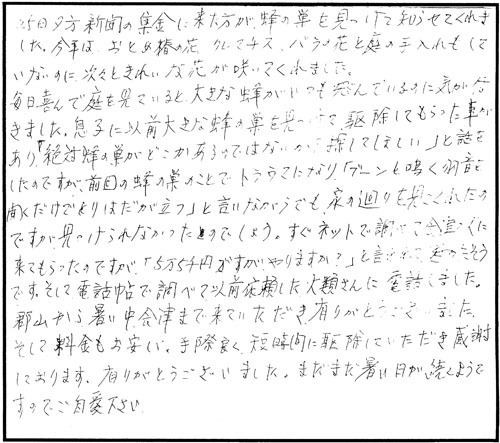 25日夕方新聞の集金に来た方が蜂の巣を見つけて知らせてくれま
した。今年は、おとめ椿の花、クレマチス、バラの花と庭の手入れもして
いないのに、次々ときれいな花が咲いてくれました。
毎日喜んで庭を見ていると、大きな蜂がいつも飛んでいるのに気が付
きました。息子に以前大きな蜂の巣を見つけて駆除してもらった事が
あり「絶対蜂の巣がどこかあるのではないか、探してほしい」と話を
したのですが、前回の蜂の巣のことでトラウマになり「ブーンと鳴く羽音を
聞くだけでとりはだが立つ」と言いながらでも、家の廻りを見てくれたの
ですが見つけられなかったのでしょう。すぐネットで調べて会社に
来てもらったのですが、「5万5千円ですがやりますか?」と言われて
です。そして電話帖で調べて以前依頼した大類さんに電話しました。
郡山から暑い中会津まで来ていただき有りがとうございました。
そして料金もお安い。手際良く、短時間に駆除していただき感謝
しております。有りがとうございました。まだまだ暑い日が続くようで
すのでご自愛下さい